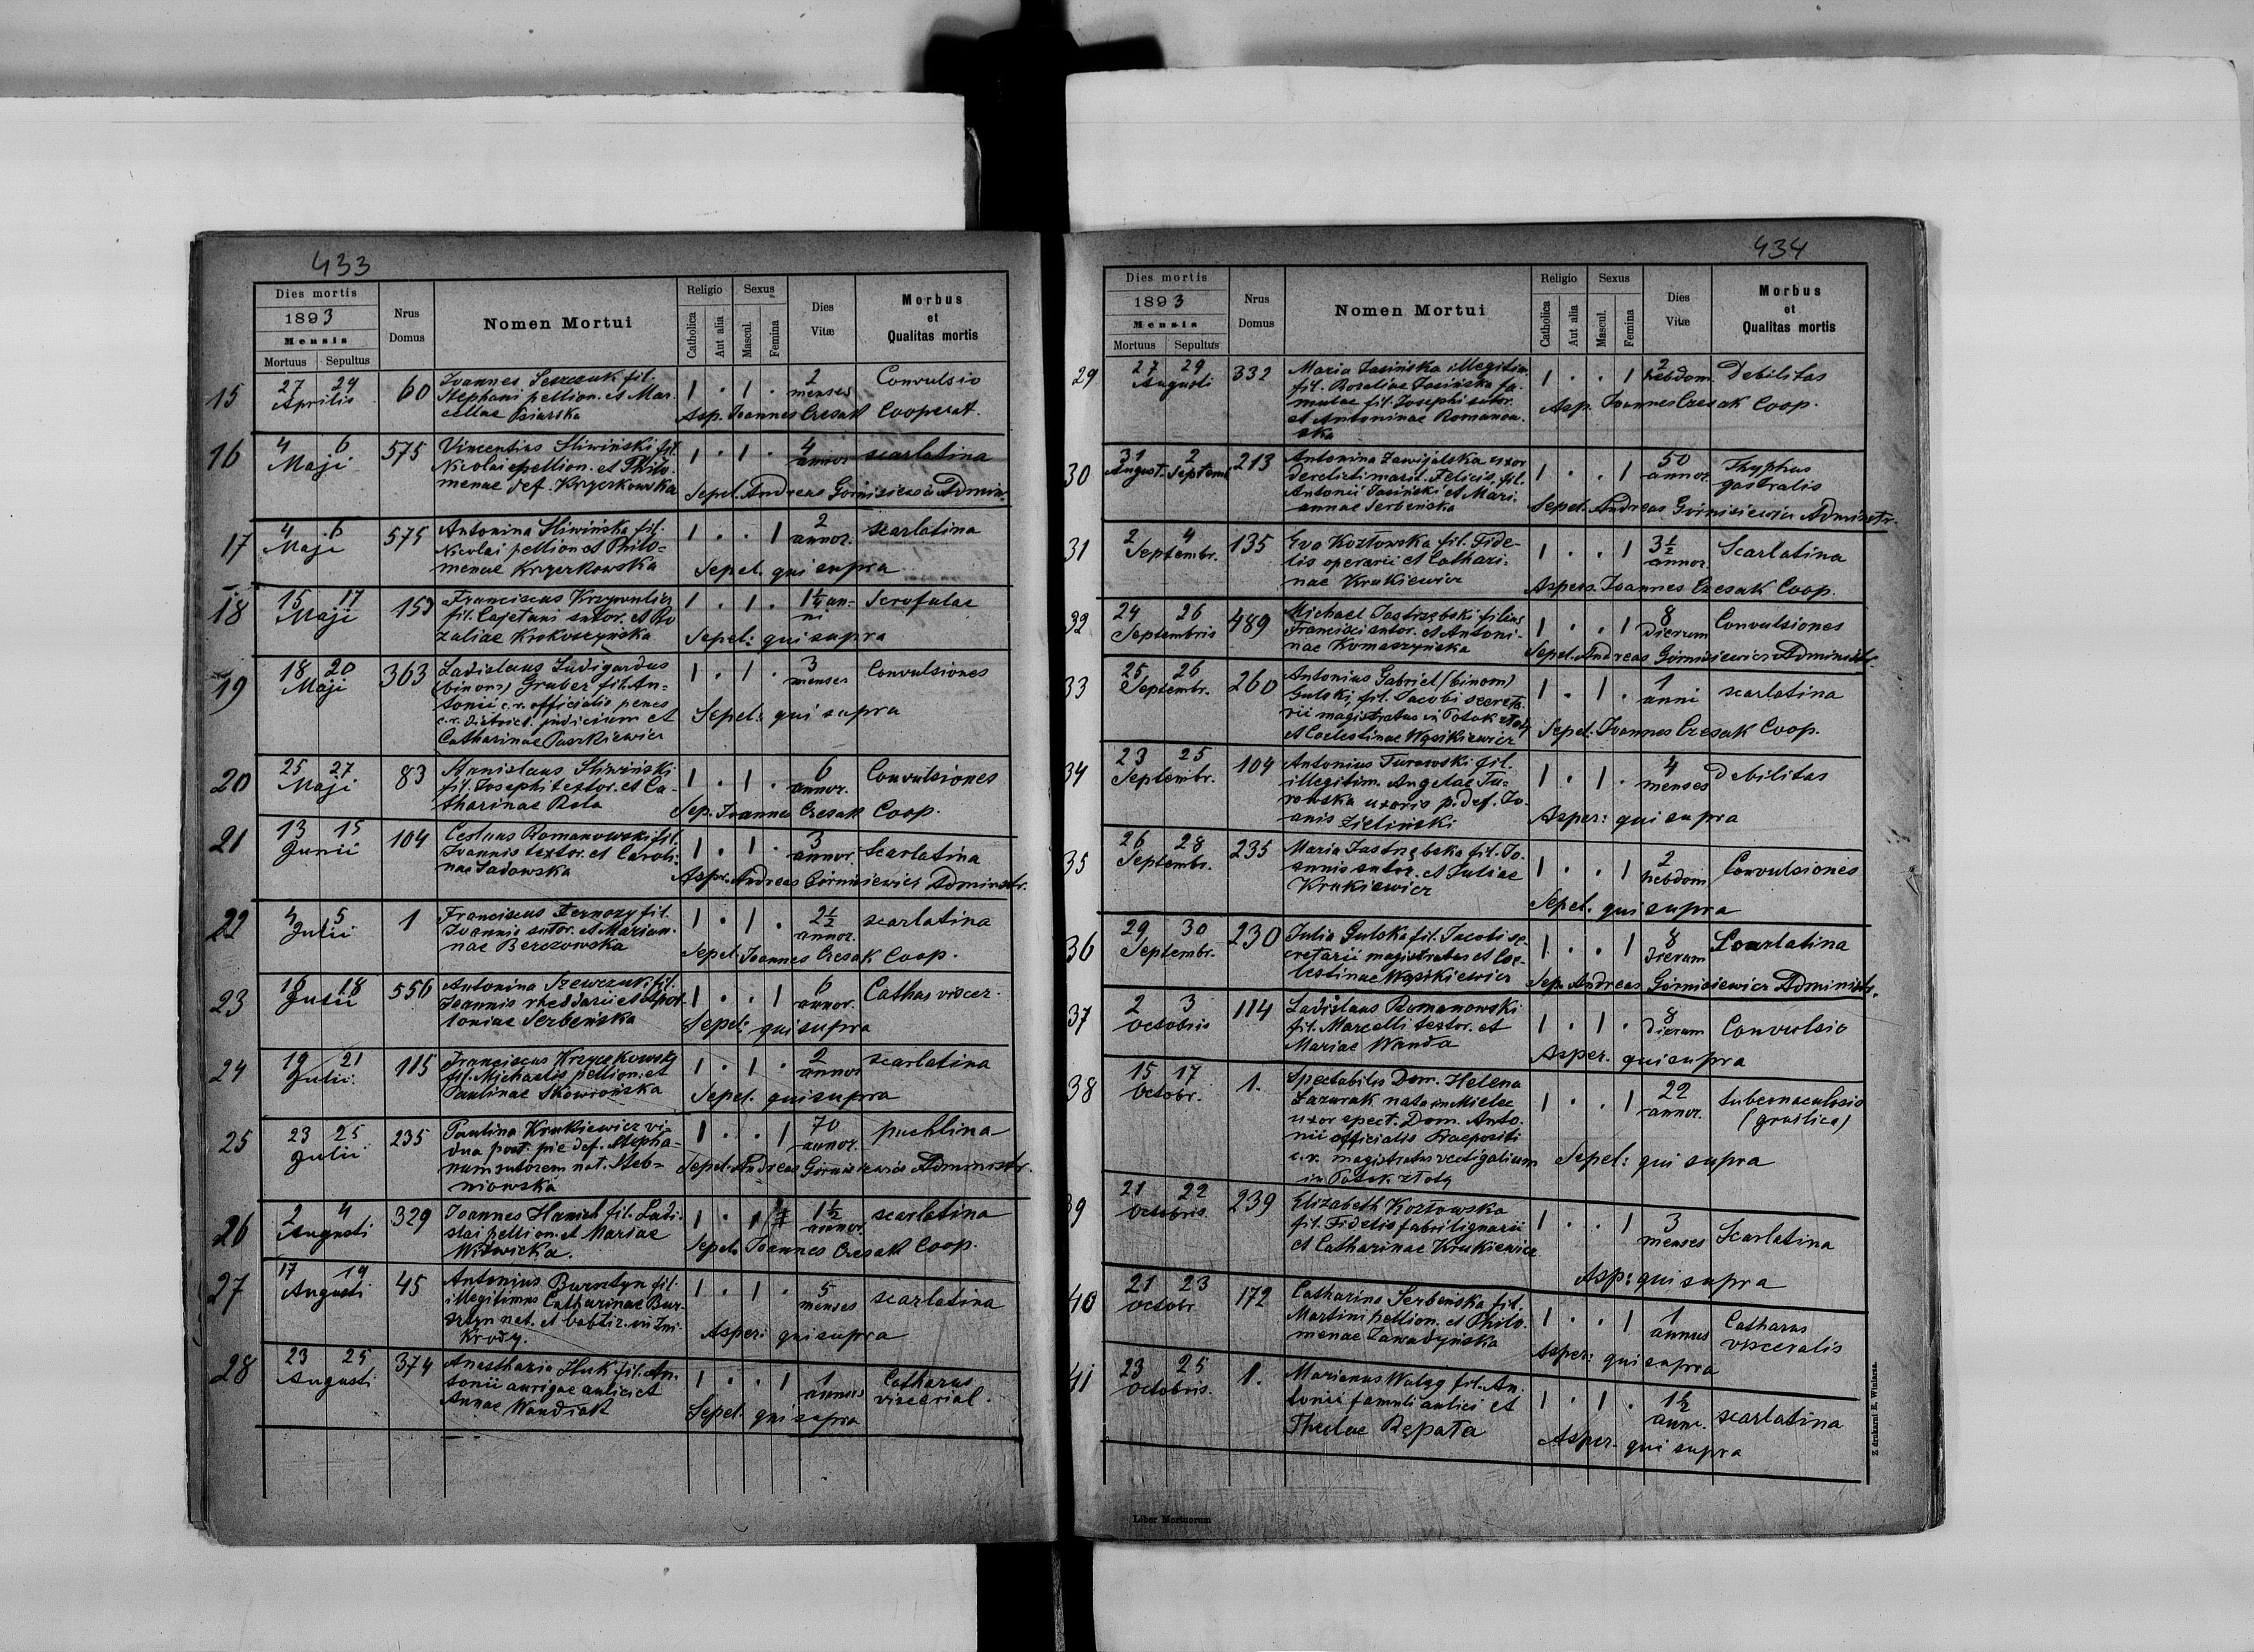 433
Dies mortis
1893
Mensis
Mortuus Sepultus
Nrus Domus
Nomen Mortui
Religio
Catholica
Aut alia
Sexus
Mascul.
Femina
Dies Vitæ
Morbus et Qualitas mortis
15 27 29 60 Joannes Szewczuk fil. 1 . 1 . 2 Convulsio
Aprilis Stephani pellion. et Mar- menses
cellae Psiarska Asp. Joannes Czesak Cooperat.
16 4 6 575 Vincentius Sliwiński fil. 1 . 1 . 4 scarlatina
Maji Nicolai pellion. et Philo- annor
menae def. Krzyżkowska Sepel. Andreas Górnisiewicz Admin.
17 4 6 575 Antonina Sliwińska fil. 1 . . 1 2 scarlatina
Maji Nicolai pellion et Philo- annor.
menae Krzyżkowska Sepel. qui supra
18 15 17 153 Franciscus Krzywulicz 1 . 1 . 1¼ an- Scrofulae
Maji fil. Cajetani sutor. et Ro ni
zaliae Krokoszyńska Sepel: qui supra
19 18 20 363 Ladislaus Ludigardus 1 . 1 . 3 Convulsiones
Maji (binom) Gruber fil. An- menses
tonii c.r. officialis penes
c.r. district. judicium et Sepel: qui supra
Catharinae Paszkiewicz
20 25 27 83 Stanislaus Sliwiński 1 . 1 . 6 Convulsiones
Maji fil. Josephi textor. et Ca- annor.
tharinae Rola Sep. Joannes Czesak Coop.
21 13 15 104 Romanowski fil. 1 . 1 . 3 Scarlatina
Junii Joannis textor. et Caroli- annor.
nae Sadowska Asper. Andreas Górnisiewicz Administr.
22 4 5 1 Franciscus fil. 1 . 1 . 2½ scarlatina
Julii Joannis sutor. et Marian- annor.
nae Berezowska Sepel. Joannes Czesak Coop.
23 16 18 556 Antonina Szewczuk fil. 1 . . 1 6 Cathar viscer.
Julii Joannis rhedarii et Apol- annor.
loniae Serbeńska Sepel: qui supra
24 19 21 115 Franciscus Krzyżkowski 1 . 1 . 2 scarlatina
Julii. fil. Michaelis pellion. et annor
Paulinae Skowrońska Sepel. qui supra
25 23 25 235 Paulina Krukiewicz vi- 1 . . 1 70 puchlina
Julii dua post. pie def. Stepha- annor.
num sutorem nat. Steb- Sepel. Andreas Górnisiewicz Administr.
niowska
26 2 4 329 Joannes Hanich fil. Ladi- 1 . 1 1½ scarlatina
Augusti slai pellion. et Mariae annor
Witwicka. Sepel. Joannes Czesak Coop.
27 17 19 45 Antonius Bursztyn fil. 1 . 1 . 5 scarlatina
Augusti illegitimus Catharinae Bur- menses
sztyn nat. et babtiz. in Zni- Asper: qui supra
krody.
28 23 25 374 Anasthazia Huk fil. An- 1 . . 1 1 Catharus
Augusti tonii aurigae aulici et annus viscerial.
Annae Wandiak Sepel. qui supra
434
Dies mortis
1893
Mensis
Mortuus Sepultus
Nrus Domus
Nomen Mortui
Religio
Catholica
Aut alia
Sexus
Mascul.
Femina
Dies Vitæ
Morbus et Qualitas mortis
29 27 29 332 Maria Jasińska illegitim. 1 . . 1 2 Debilitas
Augusti fil. Rosaliae Jasińska fa- hebdom.
mulae fil. Josephi sutor. Asp. Joannes Czesak Coop.
et Antoninae Romanow-
ska
30 31 2 213 Antonina Zawijalska uxor 1 . . 1 50 Thyphus
August. Septemb derelicti marit. Felicis, fil. annor. gastralis
Antonii Jasiński et Mari- Sepel. Andreas Górnisiewicz Administr.
annae Serbeńska
31 2 4 135 Eva Kozłowska fil. Fide- 1 . . 1 3½ Scarlatina
Septembr. lis operarii et Cathari- annor
nae Krukiewicz Aspers. Joannes Czesak Coop.
32 24 26 489 Michael Jastrzębski filius 1 . . 1 8 Convulsiones
Septembris Francisci sutor. et Antoni- dierum
nae Romaszyńska Sepel. Andreas Górnisiewicz Administr.
33 25 26 260 Antonius Gabriel (binom) 1 . 1 . 1 scarlatina
Septembr. Gulski, fil. Jacobi secreta- anni
rii magistratus in Potok złoty
et Coelestinae Wąsikiewicz Sepel. Joannes Czesak Coop.
34 23 25 104 Antonius Turowski fil. 1 . 1 . 4 Debilitas
Septembr. illegitim. Angelae Tu- menses
rowska uxoris p. def. Jo-
anis Zieliński Asper: qui supra
35 26 28 235 Maria Jastrzębska fil. Jo- 1 . . 1 2 Convulsiones
Septembr. annis sutor. et Juliae hebdom
Krukiewicz Sepel. qui supra
36 29 30 230 Julia Gulska fil. Jacobi se- 1 . . 1 8 Scarlatina
Septembr. cretarii magistratus et Coe- dierum
lestinae Wąsikiewicz Sep. Andreas Górnisiewicz Administr.
37 2 3 114 Ladislaus Romanowski 1 . 1 . 8 Convulsio
Octobris fil. Marcelli textor. et dierum
Mariae Wanda Asper. qui supra
38 15 17 1. Spectabilis Dom. Helena 1 . . 1 22
Octobr. Lazurak nata in Mielec annor.
uxor spect. Dom. Anto-
nii officialis Praepositi
c.r. magistratus vectigalium Sepel: qui supra
in Potok złoty
39 21 22 239 Elizabeth Kozłowska 1 . . 1 3 Scarlatina
Octobris fil. Fidelis fabri lignarii menses
et Catharinae Krukiewicz
Asp: qui supra
40 21 23 172 Catharina Serbeńska fil. 1 . . 1 1 Catharus
Octobr. Martini pellion. et Philo- annus visceralis
menae Zawadyńska Asper: qui supra
41 23 25 1. Marianus Walag fil. An- 1 . 1 . 1½ scarlatina
Octobris. tonii famuli aulici et anni.
Theclae Rępała Asper. qui supra
Liber Mortuorum
Z drukarni E. Winiarza.